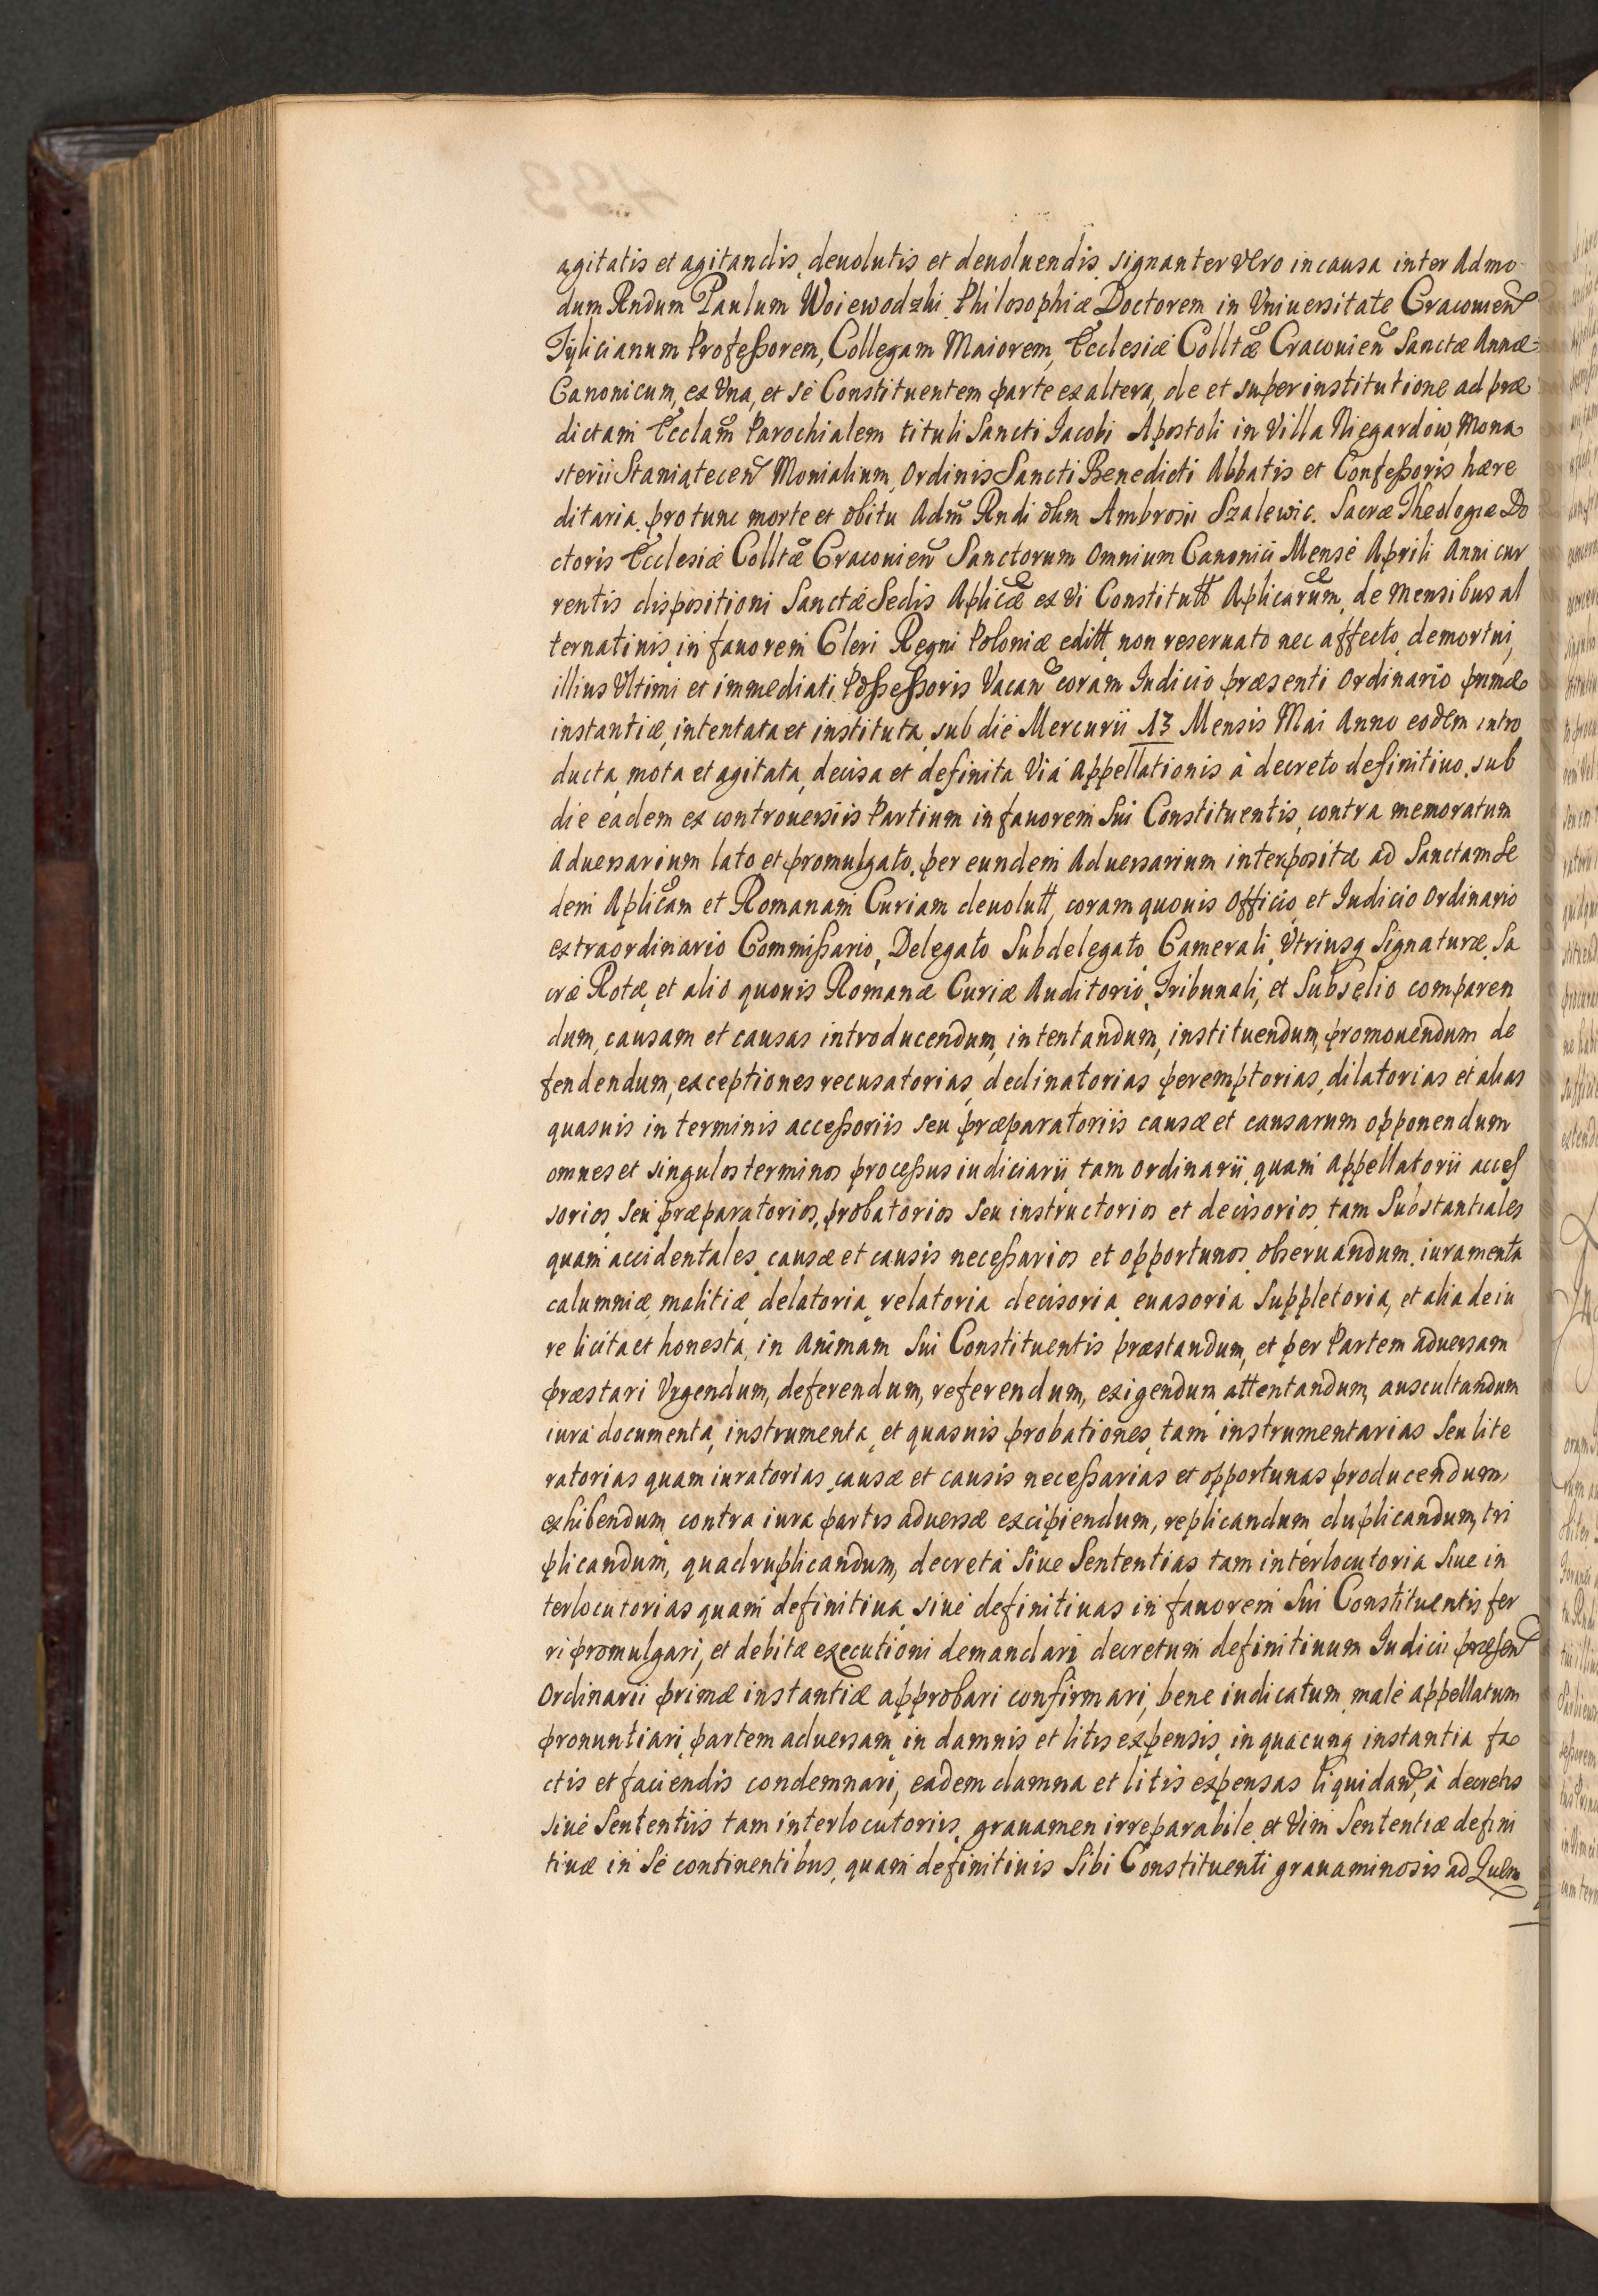 agitatis et agitandis, deuolutis et deuoluendis, signanter vero in causa inter Admo
dum Rndum Paulum Woiewodzki Philosophiæ Doctorem in Vniuersitate Cracouien
Tylicianum Profeßorem, Collegam Maiorem, Ecclesiæ Colltæ Cracouien Sanctæ Annæ
Canonicum, ex Vna, et se Constituentem parte ex altera, de et super institutione ad præ
dictam Ecclam Parochialem tituli Sancti Iacobi Apostoli in Villa Niegardów, Mona
sterii Staniątecen Monialium, Ordinis Sancti Benedicti Abbatis et Confeßoris hære
ditaria, pro tunc morte et obitu Adm Rndi olim Ambrosii Szalewic, Sacræ Theologiæ Do
ctoris Ecclesiæ Colltæ Cracouien Sanctorum Omnium Canonici Mense Aprili Anni cur
rentis dispositioni Sanctæ Sedis Aplicæ ex vi Constitutt Aplicarum, de mensibus al
ternatiuis, in fauorem Cleri Regni Poloniæ editt non reseruato nec affecto, demortui,
illius Vltimi et immediati Poßeßoris Vacan coram Iudicio præsenti Ordinario primæ
instantiæ, intentata et instituta, sub die Mercurii 13 Mensis Mai Anno eodem intro
ducta, mota et agitata, decisa et definita Viá Appellationis à decreto definitiuo, sub
die eadem ex controuersiis Partium in fauorem Sui Constituentis, contra memoratum
Aduersarium lato et promulgato, per eundem Aduersarium interpositæ ad Sanctam Se
dem Aplicam et Romanam Curiam deuolutt, coram quouis Officio, et Iudicio Ordinario
extraordinario Commißario, Delegato Subdelegato Camerali, Vtriusq Signaturæ, Sa
cræ Rotæ, et alio quouis Romanæ Curiæ Auditorio, Tribunali, et Subselio comparen
dum, causam et causas introducendum, intentandum, instituendum, promouendum de
fendendum, exceptiones recusatorias, declinatorias peremptorias, dilatorias et alias
quasuis in terminis acceßoriis seu præparatoriis causæ et causarum opponendum
omnes et singulos terminos proceßus iudiciarii tam ordinarii, quam appellatorii acces
sorios, seu præparatorios, probatorios seu instructorios et decisorios, tam Substantiales
quam accidentales, causæ et causis neceßarios et opportunos obseruandum, iuramenta
calumniæ, malitiæ, delatoria, relatoria decisoria, euasoria Suppletoria, et alia de iu
re licita et honesta, in Animam Sui Constituentis præstandum, et per Partem aduersam
præstari Vrgendum, deferendum, referendum, exigendum, attentandum, auscultandum
iura documenta, instrumenta, et quasuis probationes, tam instrumentarias Seu lite
ratorias quam iuratorias, causæ et causis neceßarias et opportunas producendum,
exhibendum, contra iura partis aduersæ excipiendum, replicandum duplicandum, tri
plicandum, quadruplicandum, decreta Siue Sententias tam interlocutoria Siue in
terlocutorias quam definitiua, siue definitiuas in fauorem Sui Constituentis, fer
ri promulgari, et debitæ executioni demandari, decretum definitiuum Iudicii præsen
Ordinarii primæ instantiæ approbari confirmari, bene iudicatum, malè appellatum
pronuntiari, partem aduersam, in damnis et litis expensis, in quacunq instantia fa
ctis et faciendis condemnari, eadem damna et litis expensas liquidari, à decretis
siue Sententiis tam interlocutoriis, grauamen irreparabile, et Vim Sententiæ defini
tiuæ in se continentibus, quam definitiuis Sibi Constituenti grauaminosis ad Quem